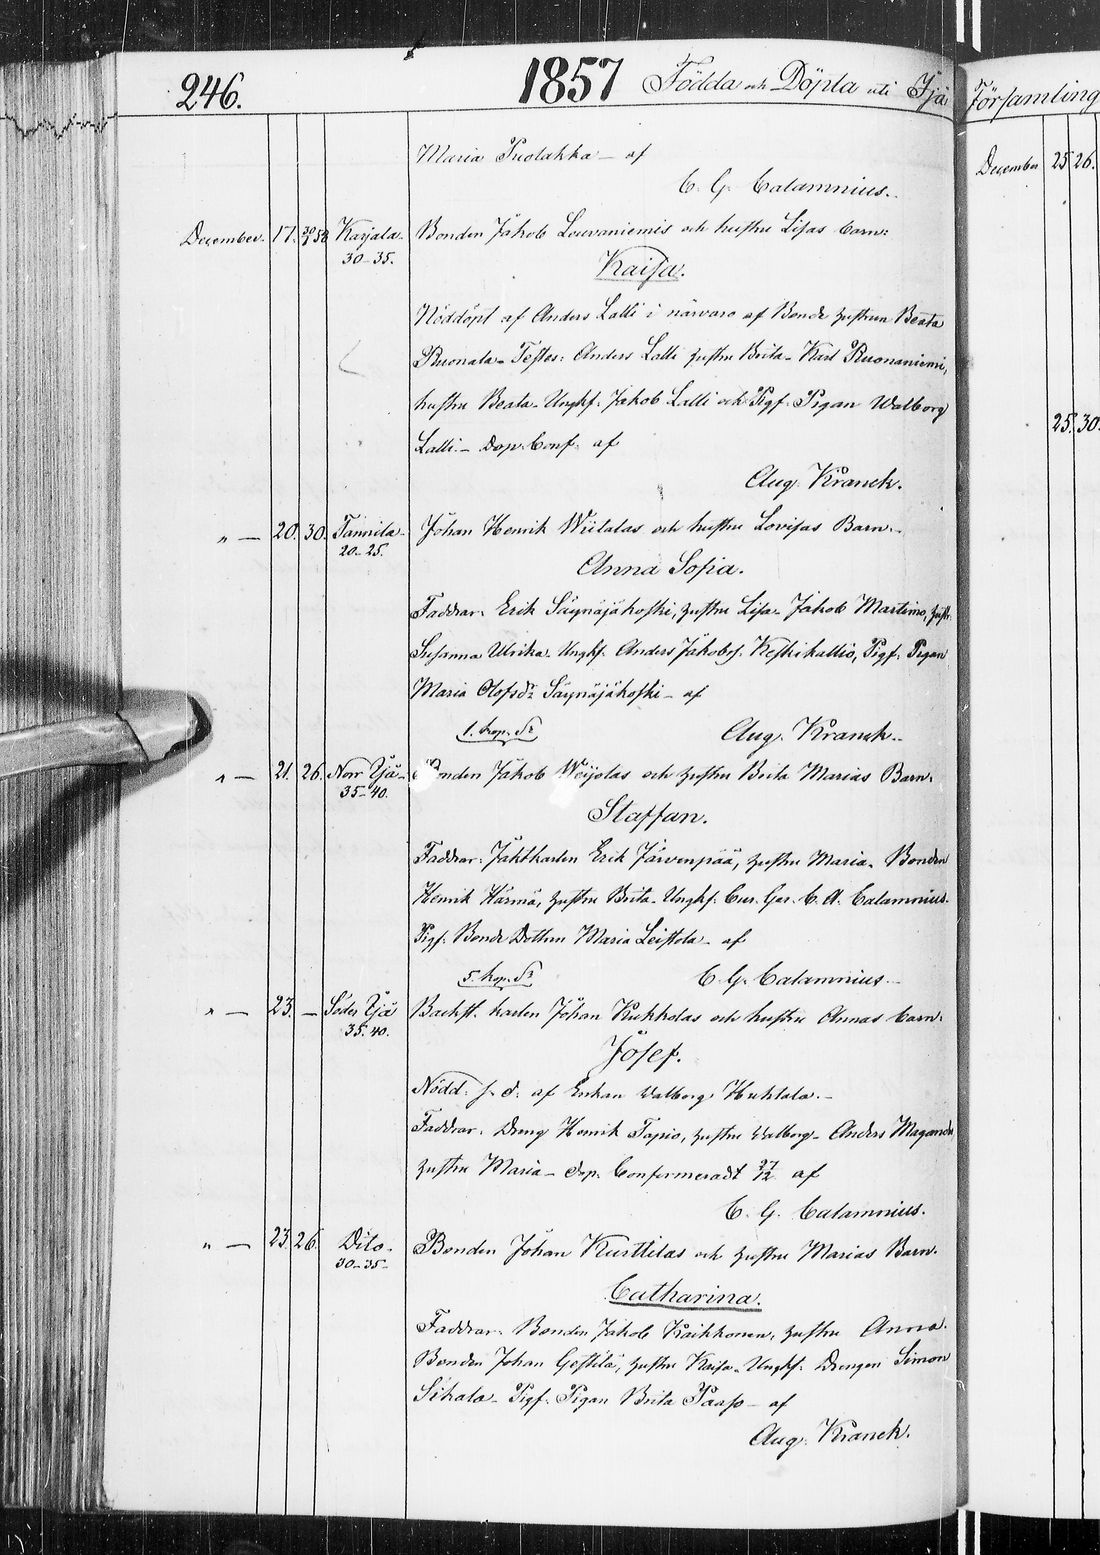 246. 1857 Födda och Döpta uti Ijä Församling
Maria Puolakka – af
C. G. Calamnius.
December. 17. 58 Karjala. Bonden Jakob Louvaniemis och hustru Lisas barn:
30–35.
Kaisa.
Nöddöpt af Anders Lalli i närvaro af Bonde hustrun Beata
Ruonala – Testes: Anders Lalli hustru Brita – Karl Ruonaniemi,
hustru Beata – Ungkf. Jakob Lalli och Pigf. Pigan Walborg
Lalli. – Dop. Conf. af
Aug. Kranck.
" — 20. 30. Tannila Johan Henrik Wiitalas och hustru Lovisas Barn. –
20–25.
Anna Sofia.
Faddrar. Erik Säynäjäkoski, hustru Lisa – Jakob Martimo, hustr.
Susanna Ulrika – Ungkf. Anders Jakobss. Keskikallio, Pigf. Pigan
Maria Olofsdr Säynäjäkoski – af
1. kop. Sr Aug. Kranck. –
" — 21. 26. Norr Ijä – Bonden Jakob Weijolas och hustru Brita Marias Barn.
35–40.
Staffan.
Faddrar: Jaktkarlen Erik Järvenpää, hustru Maria. Bonden
Henrik Härmä, hustru Brita – Ungkf. Cur. Gar. C. A. Calamnius.
Pigf. Bonde Dottern Maria Leistola – af
5. kop. Sr C. G. Calamnius. –
" — 23. — Söder Ijä Backst. karlen Johan Kukkolas och hustru Annas barn.
35. 40.
Josef.
Nödd: s. d. af Enkan Walborg Huhtala. –
Faddrar. Dreng Henrik Tapio, hustru Walborg – Anders Maganda
hustru Maria – dop. Confermeradt 27/12 af
C. G. Calamnius.
" — 23. 26. Dito. Bonden Johan Kurttilas och hustru Marias Barn.
30–35–
Catharina.
Faddrar. Bonden Jakob Kaikkonen, hustru Anna.
Bonden Johan Gestilä, hustru Kaisa – Ungkf. Drengen Simon
Sikala – Pigf. Pigan Brita Paaso – af
Aug. Kranck.
December 25 26.
25. 30.